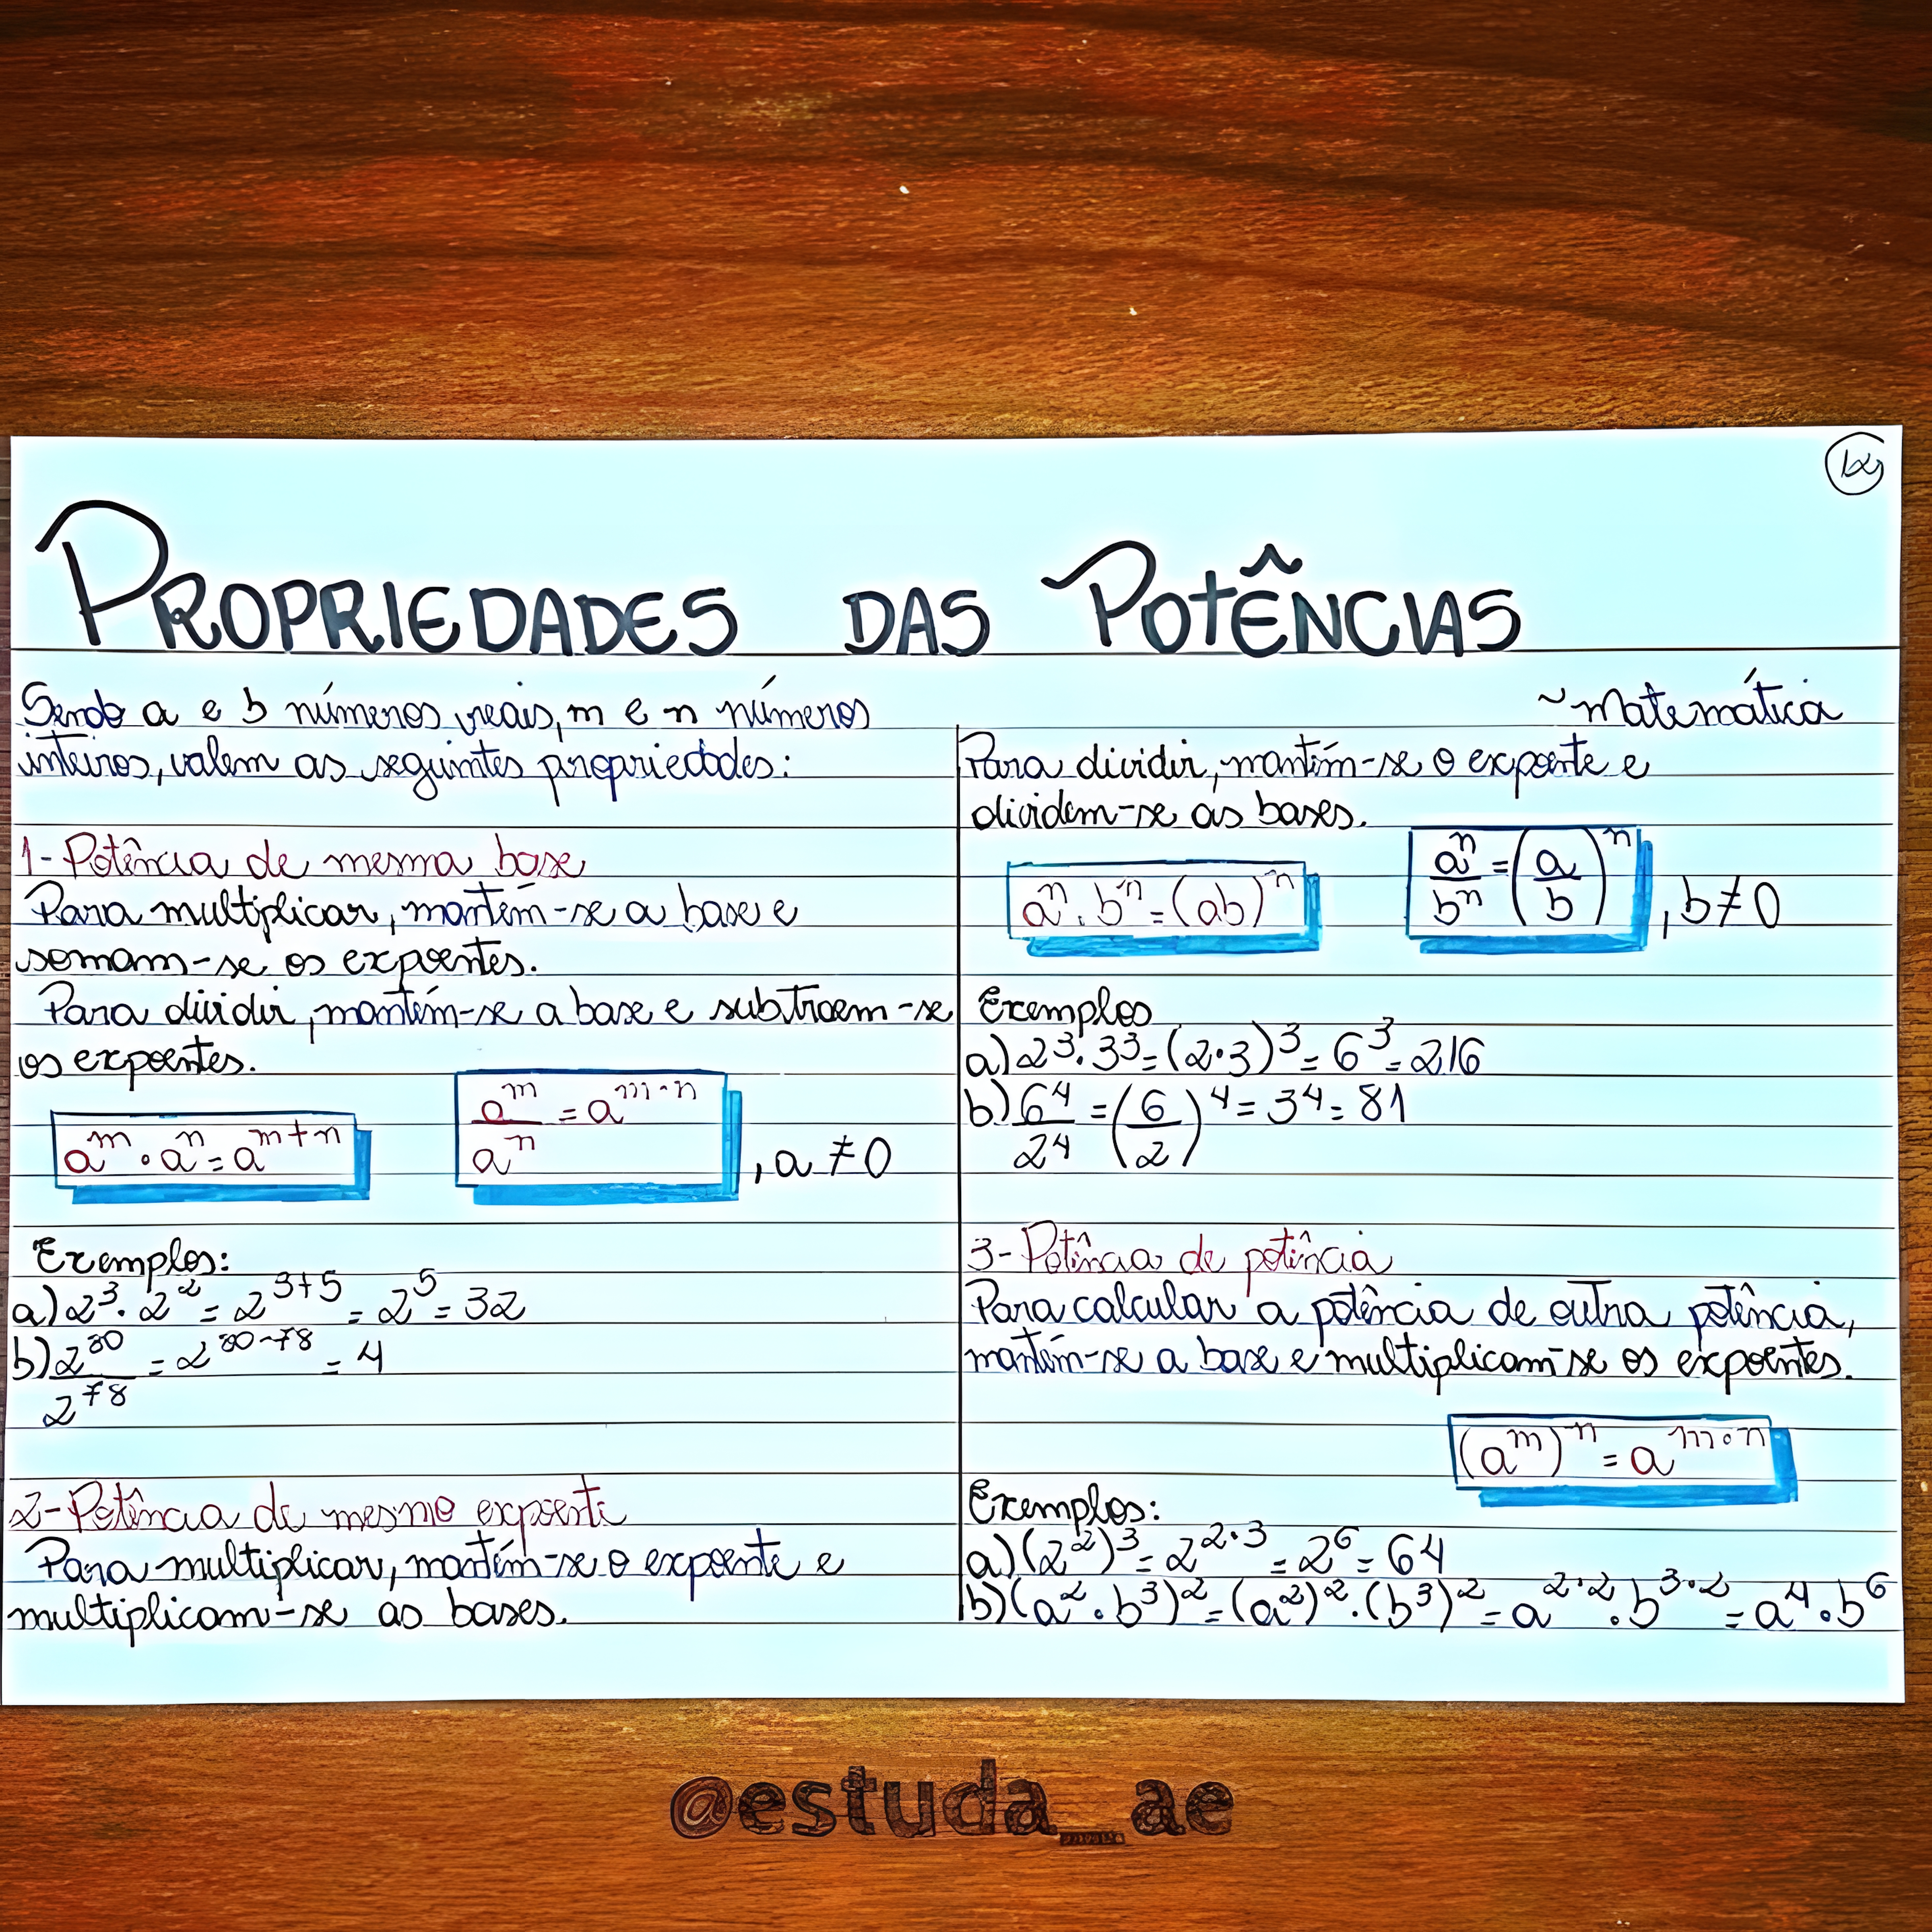 PROPRIEDADES DAS POTÊNCIAS
Sendo a e b números reais, m e n números
inteiros, valem as seguintes propriedades:
1- Potência de mesma base
Para multiplicar, mantém-se a base e
somam-se os expoentes.
Para dividir, mantém-se a base e subtraem-se
os expoentes.
a^m · a^n = a^(m+n)
a^m / a^n = a^(m-n) , a ≠ 0
Exemplos:
a) 2^3 · 2^2 = 2^(3+5) = 2^5 = 32
b) 2^80 / 2^78 = 2^(80-78) = 4
2- Potência de mesmo expoente
Para multiplicar, mantém-se o expoente e
multiplicam-se as bases.
~Matemática
Para dividir, mantém-se o expoente e
dividem-se as bases.
a^n · b^n = (ab)^n
a^n / b^n = (a/b)^n , b ≠ 0
Exemplos
a) 2^3 · 3^3 = (2·3)^3 = 6^3 = 216
b) 6^4 / 2^4 = (6/2)^4 = 3^4 = 81
3- Potência de potência
Para calcular a potência de outra potência,
mantém-se a base e multiplicam-se os expoentes.
(a^m)^n = a^(m·n)
Exemplos:
a) (2^2)^3 = 2^(2·3) = 2^6 = 64
b) (a^2 · b^3)^2 = (a^2)^2 · (b^3)^2 = a^(2·2) · b^(3·2) = a^4 · b^6
@estuda_ae